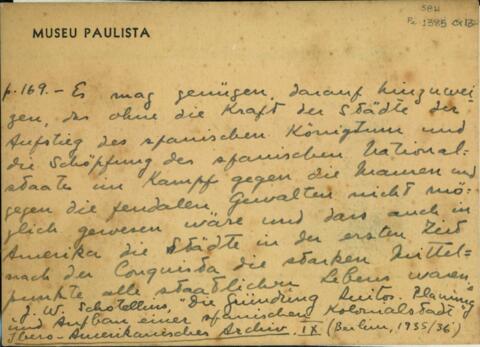 MUSEU PAULISTA
SBH
Pi 1385
p. 169. – Es mag genügen, darauf hinzuwei-
gen, das ohne die Kraft der Städte der
Aufstieg des spanischen Königtum und
die Schöpfung des spanischen National-
staats im Kampf gegen die Mauren und
gegen die feudalen Gewalten nicht mö-
glich gewesen wäre und dass auch in
Amerika die Städte in der ersten Zeit
nach der Conquista die starken Mittel-
punkte alle staatlichen Lebens waren
J. W. Schottelius, "Die Gründung Quitos. Planung
und Aufbau einer spanischen Kolonialstadt"
Ibero-Amerikanisches Archiv. IX (Berlin, 1935/36)